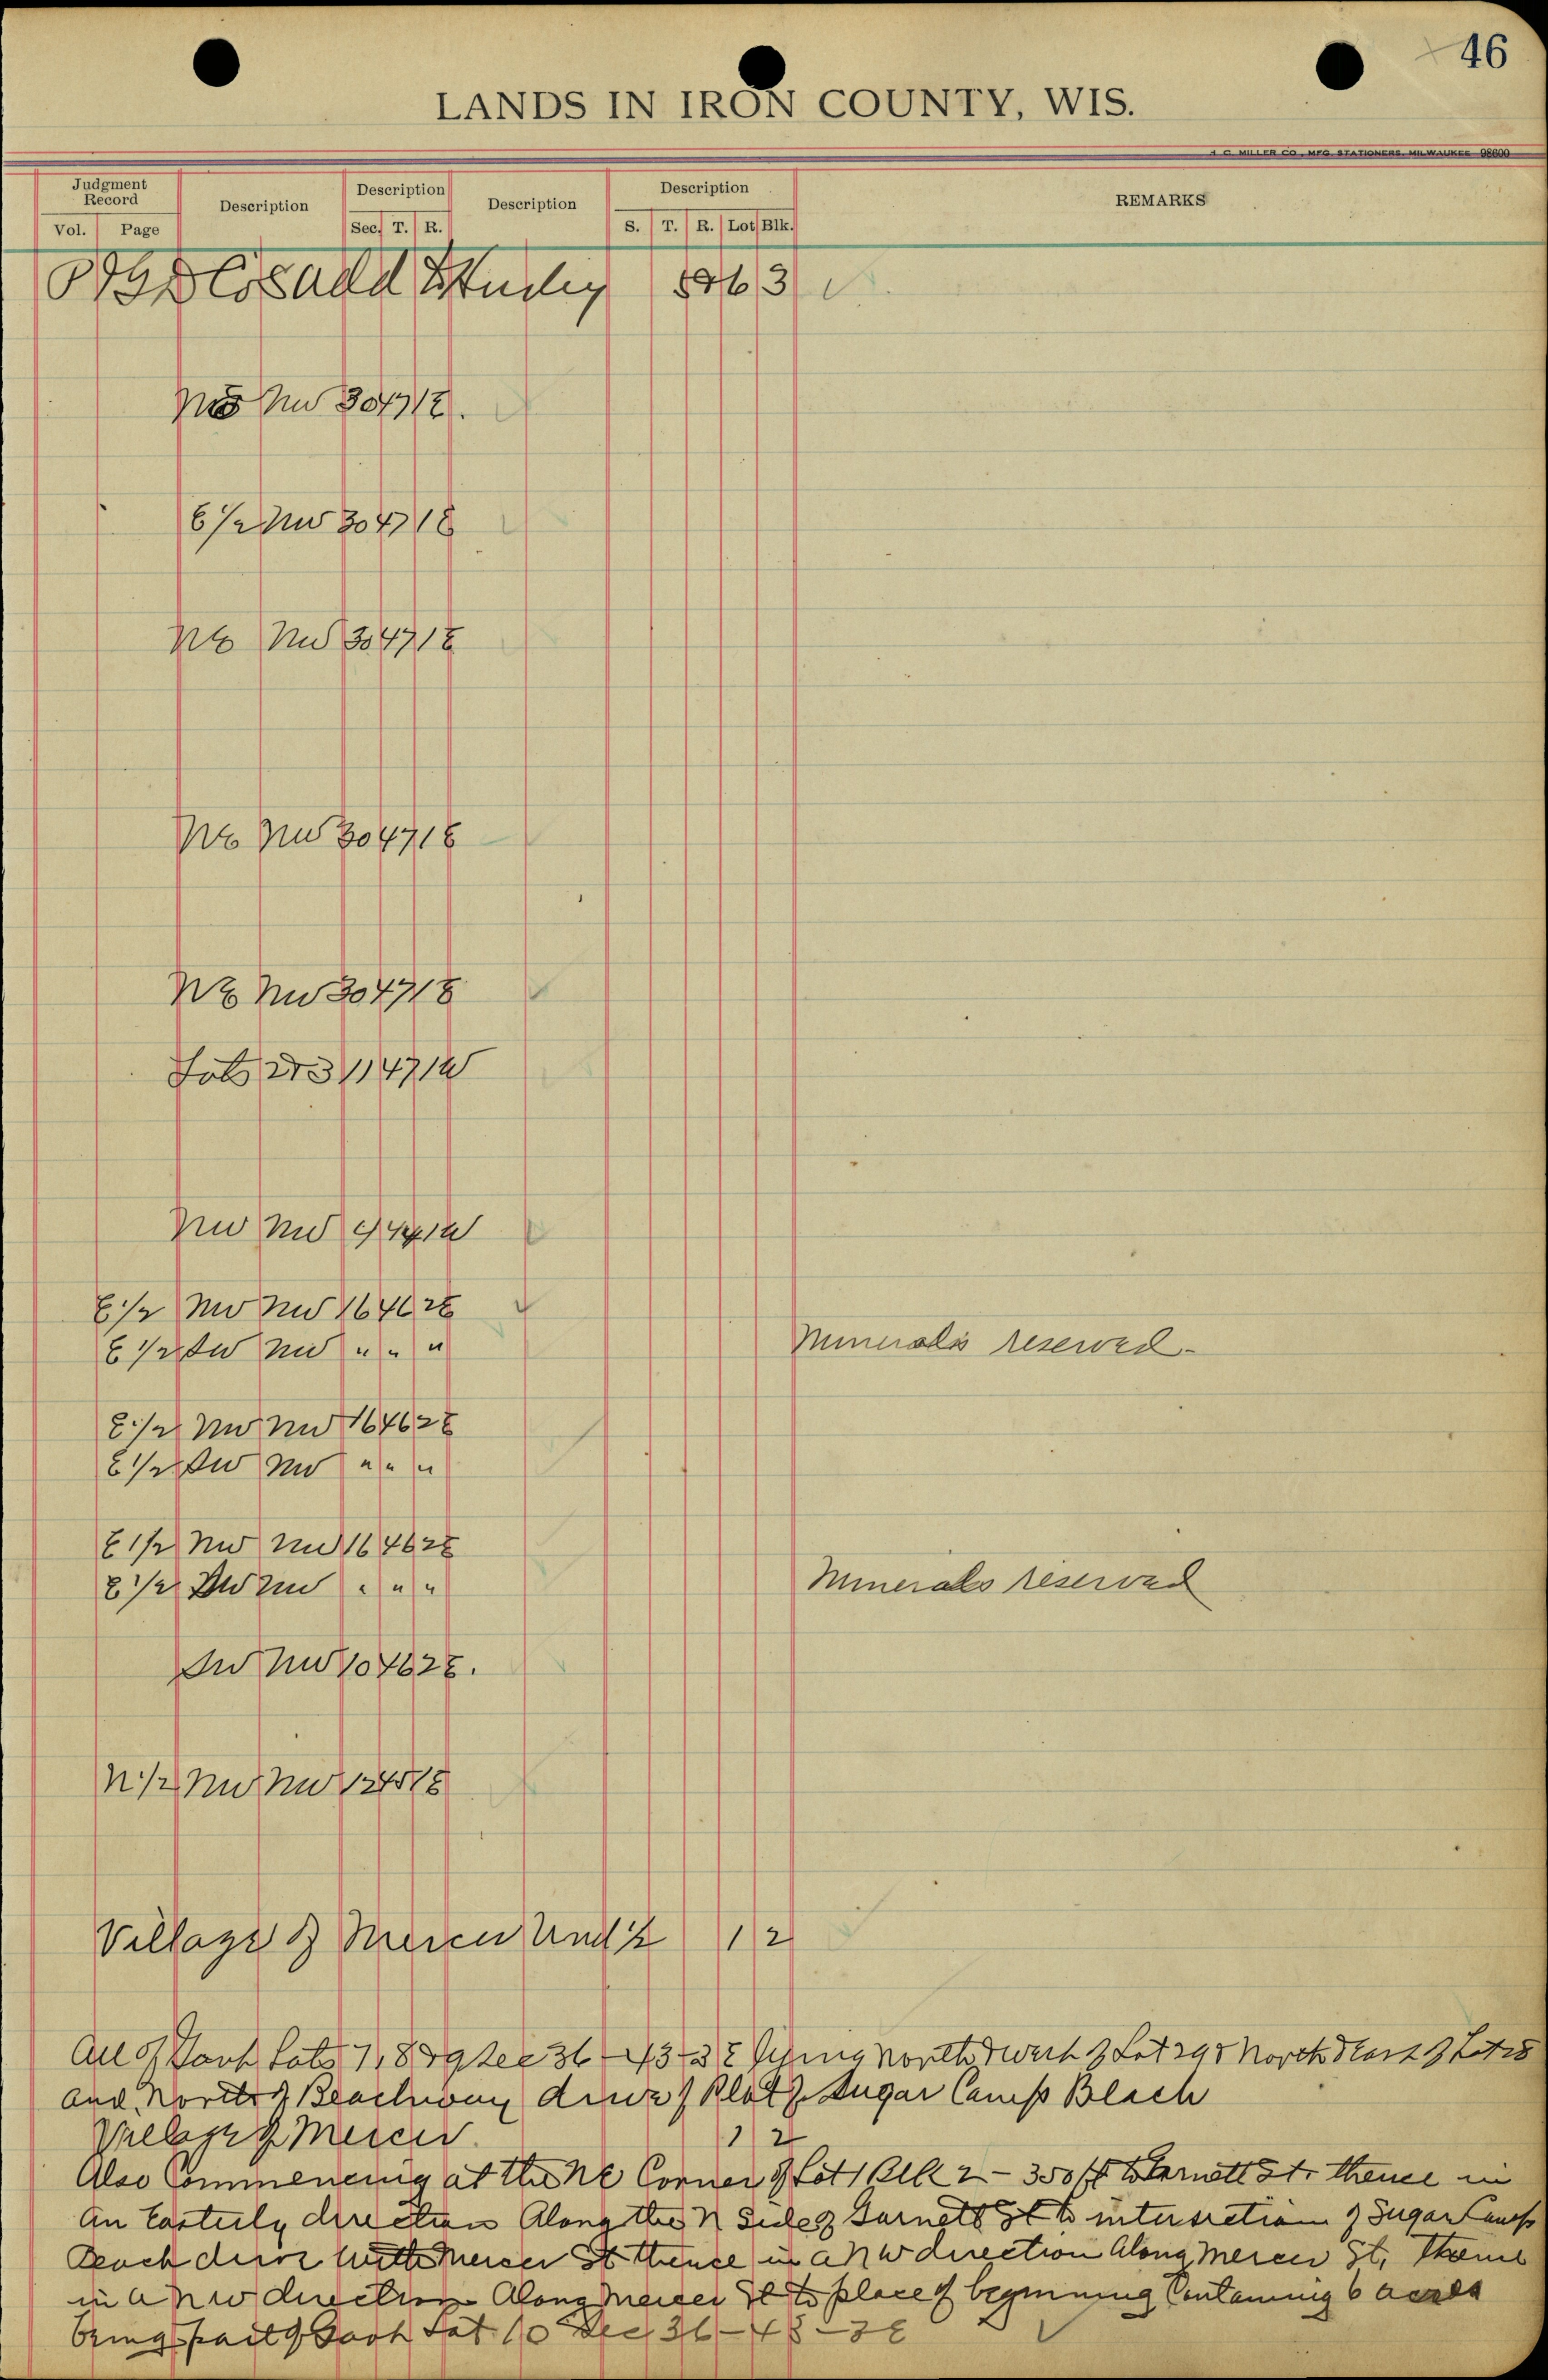 46
LANDS IN IRON COUNTY, WIS.
MILLER CO., MFG. STATIONERS, MILWAUKEE 98600
Judgment Record Description Description Description Description REMARKS
Vol. Page Sec. T. R. S. T. R. Lot Blk.
Cos Add Hurley 3
NE NW 30 47 1E.
E 1/2 NW 30 47 1E
NE NW 30 47 1E
NE NW 30 47 1E
NE NW 30 47 1E
Lots 2+3 11 47 1W
NW NW 9 44 1W
E 1/2 NW NW 16 46 2E
E 1/2 SW NW " " "
Minerals reserved -
E 1/2 NW NW 16 46 2E
E 1/2 SW NW " " "
E 1/2 NW NW 16 46 2E
E 1/2 SW NW " " "
Minerals reserved
SW NW 10 46 2E.
N 1/2 NW NW 12 45 1E
Village of Mercer Und 1/2 1 2
All of Govt Lots 7, 8 & 9 Sec 36-43-3E lying North & West of Lot 29 & North & East of Lot 28
and North of Beachway drive of Plat of Sugar Camp Beach
Village of Mercer 1 2
Also Commencing at the NE Corner of Lot 1 Blk 2 - 350 ft to Garnett St. thence in
an Easterly direction Along the N side of Garnett St to intersection of Sugar Camp
Beach drive with Mercer St thence in a NW direction Along Mercer St, Thence
in a NW direction Along Mercer St to place of beginning Containing 6 acres
being part of Govt Lot 10 Sec 36-43-3E